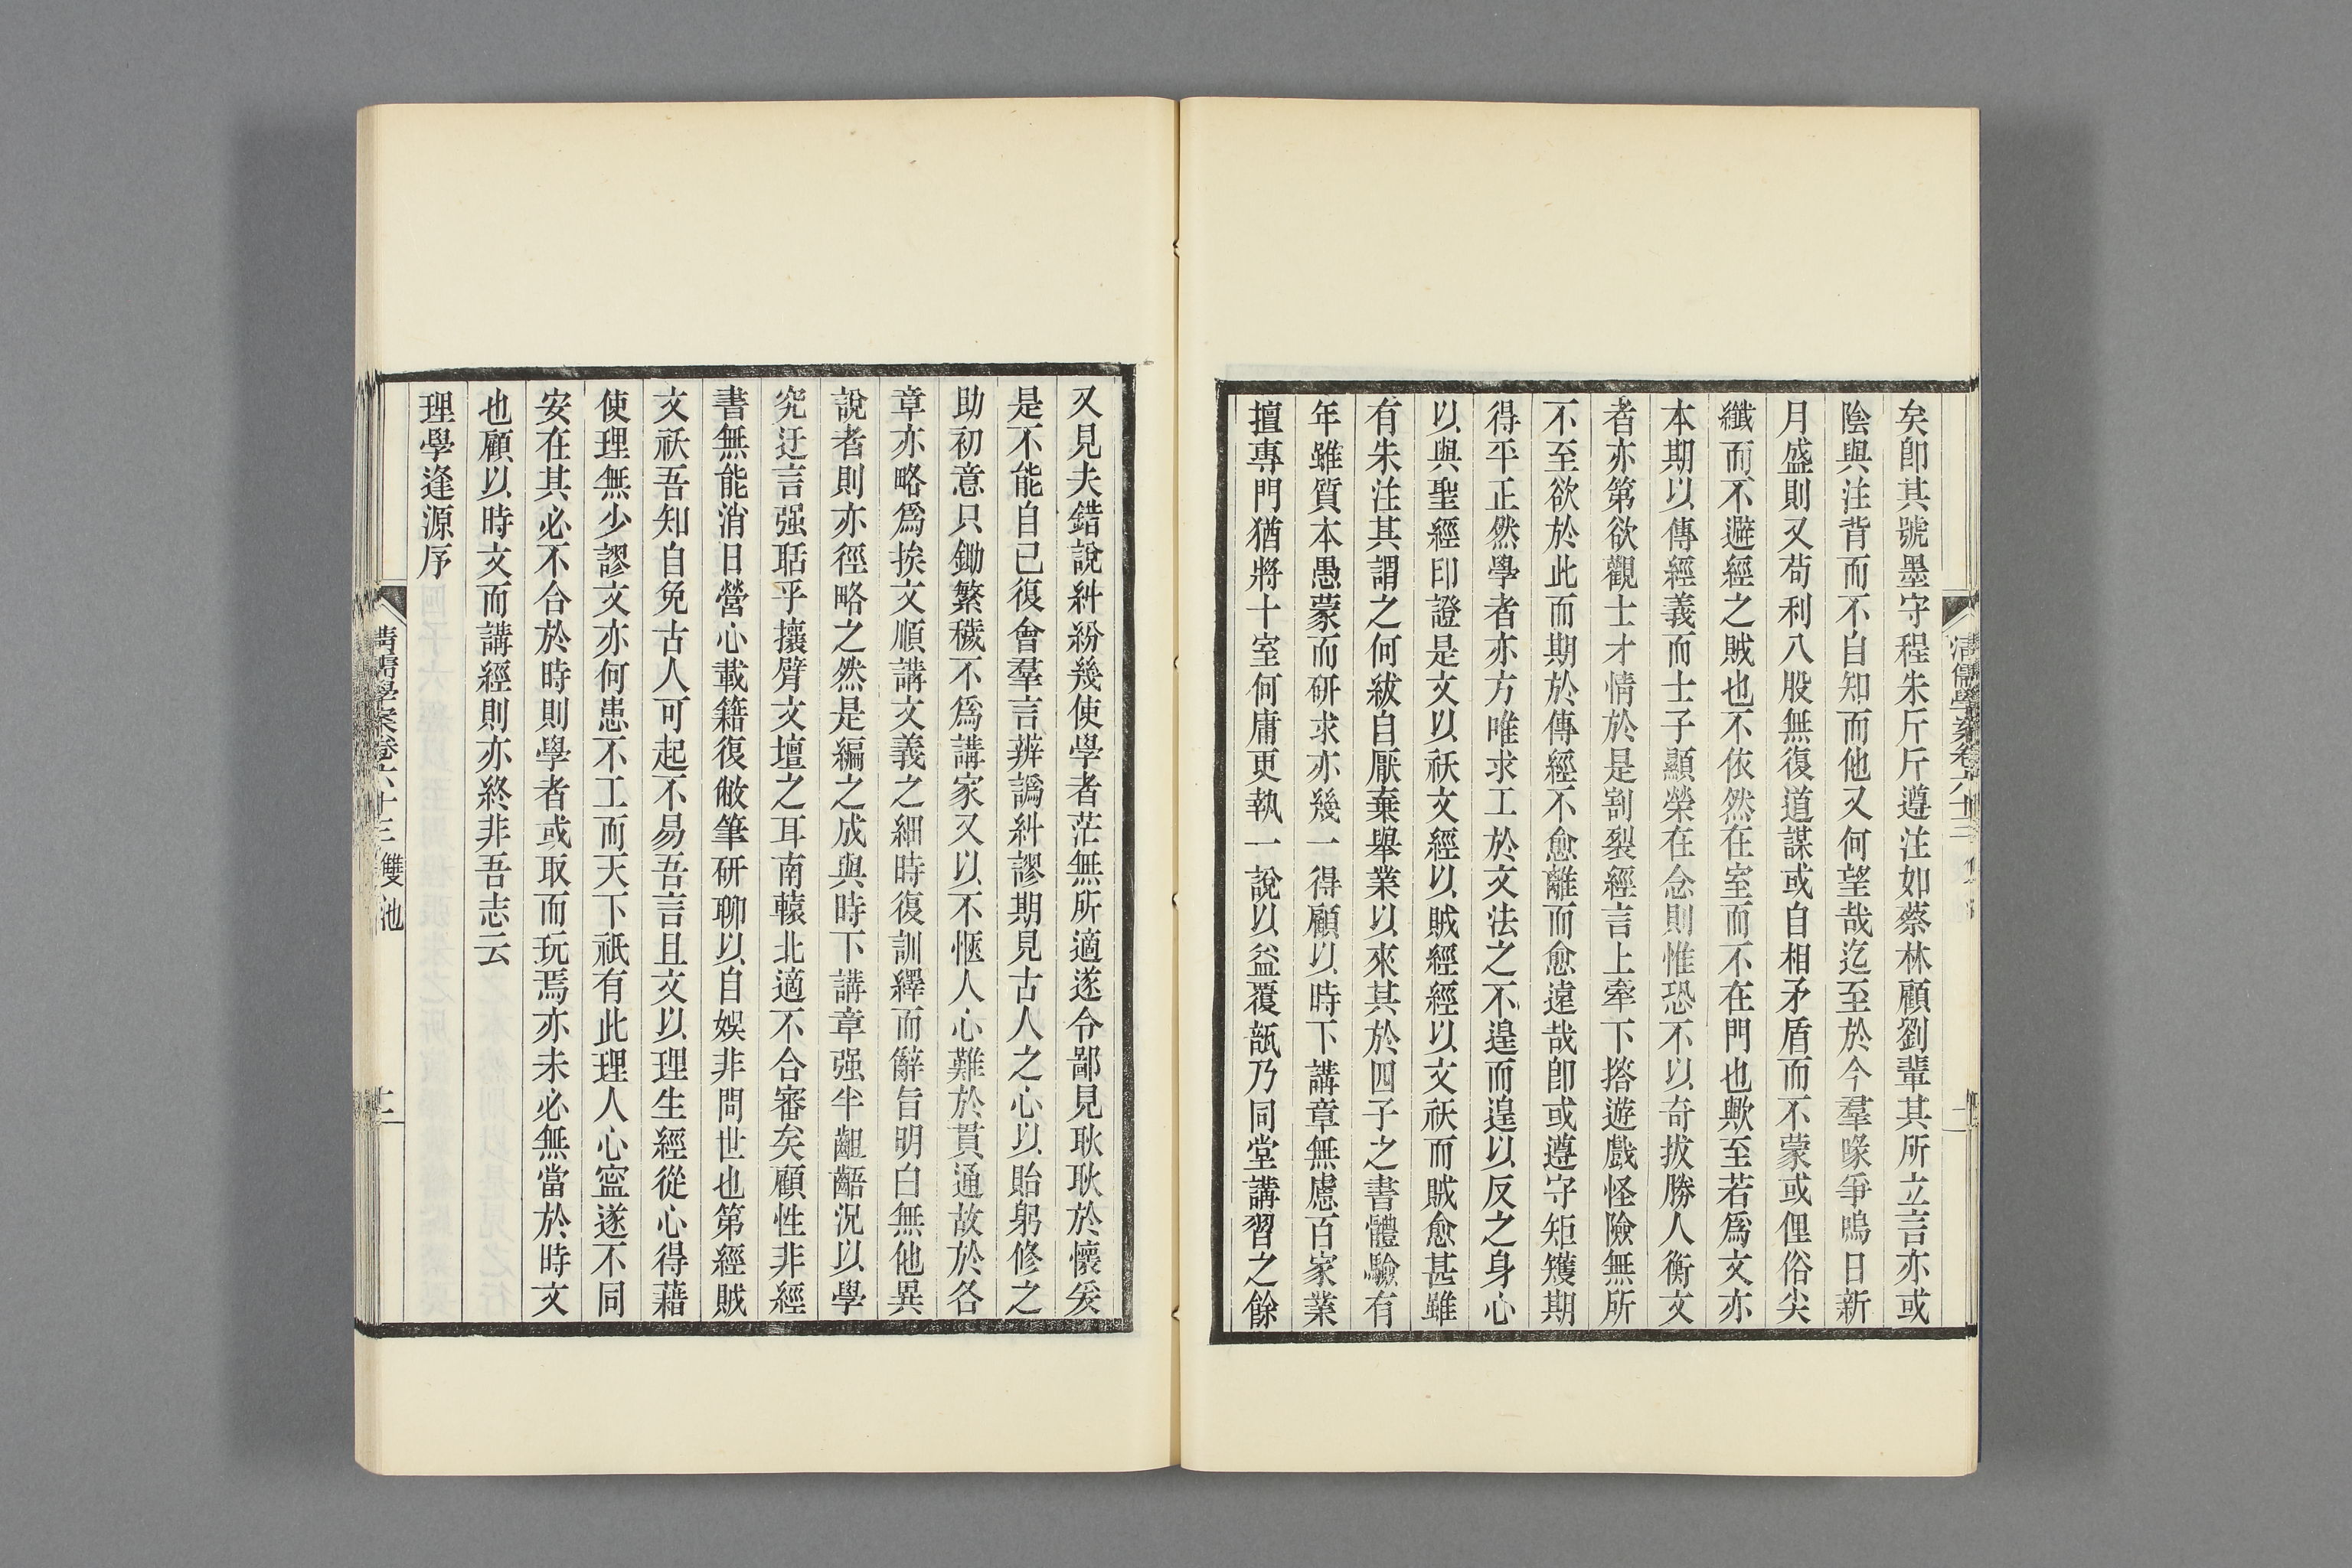 矣卽其號墨守程朱斤斤遵注如蔡林顧劉輩其所立言亦或
陰與注背而不自知而他又何望哉迄至於今羣喙爭鳴日新
月盛則又苟利八股無復道謀或自相矛盾而不蒙或俚俗尖
纖而不避經之賊也不依然在室而不在門也歟至若爲文亦
本期以傳經義而士子顯榮在念則惟恐不以奇拔勝人衡文
者亦第欲觀士才情於是割裂經言上牽下搭遊戲怪險無所
不至欲於此而期於傳經不愈離而愈遠哉卽或遵守矩矱期
得平正然學者亦方唯求工於文法之不遑而遑以反之身心
以與聖經印證是文以祅文經以賊經經以文祅而賊愈甚雖
有朱注其謂之何紱自厭棄舉業以來其於四子之書體驗有
年雖質本愚蒙而研求亦幾一得顧以時下講章無慮百家業
擅專門猶將十室何庸更執一說以益覆瓿乃同堂講習之餘
又見夫錯說紏紛幾使學者茫無所適遂令鄙見耿耿於懷爰
是不能自已復會羣言辨譌紏謬期見古人之心以貽躬修之
助初意只鋤繁穢不爲講家又以不愜人心難於貫通故於各
章亦略爲挨文順講文義之細時復訓繹而辭旨明白無他異
說者則亦徑略之然是編之成與時下講章强半齟齬況以學
究迂言强聒乎攘臂文壇之耳南轅北適不合審矣顧性非經
書無能消日營心載籍復敝筆研聊以自娛非問世也第經賊
文祅吾知自免古人可起不易吾言且文以理生經從心得藉
使理無少謬文亦何患不工而天下祇有此理人心寍遂不同
安在其必不合於時則學者或取而玩焉亦未必無當於時文
也顧以時文而講經則亦終非吾志云
理學逢源序
清儒學案卷六十三 雙池